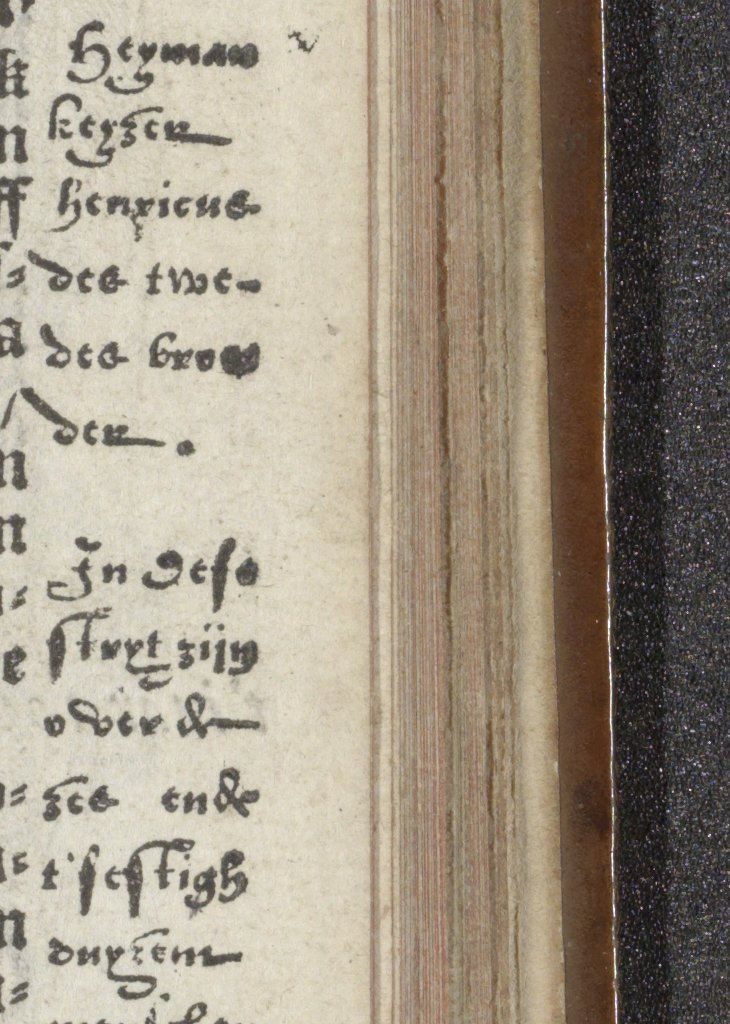 Heyman
keyzer
henricus
des twe-
des broe
der.
In dese
stryt zijn
over de
zes ende
t'sestigh
duyzent